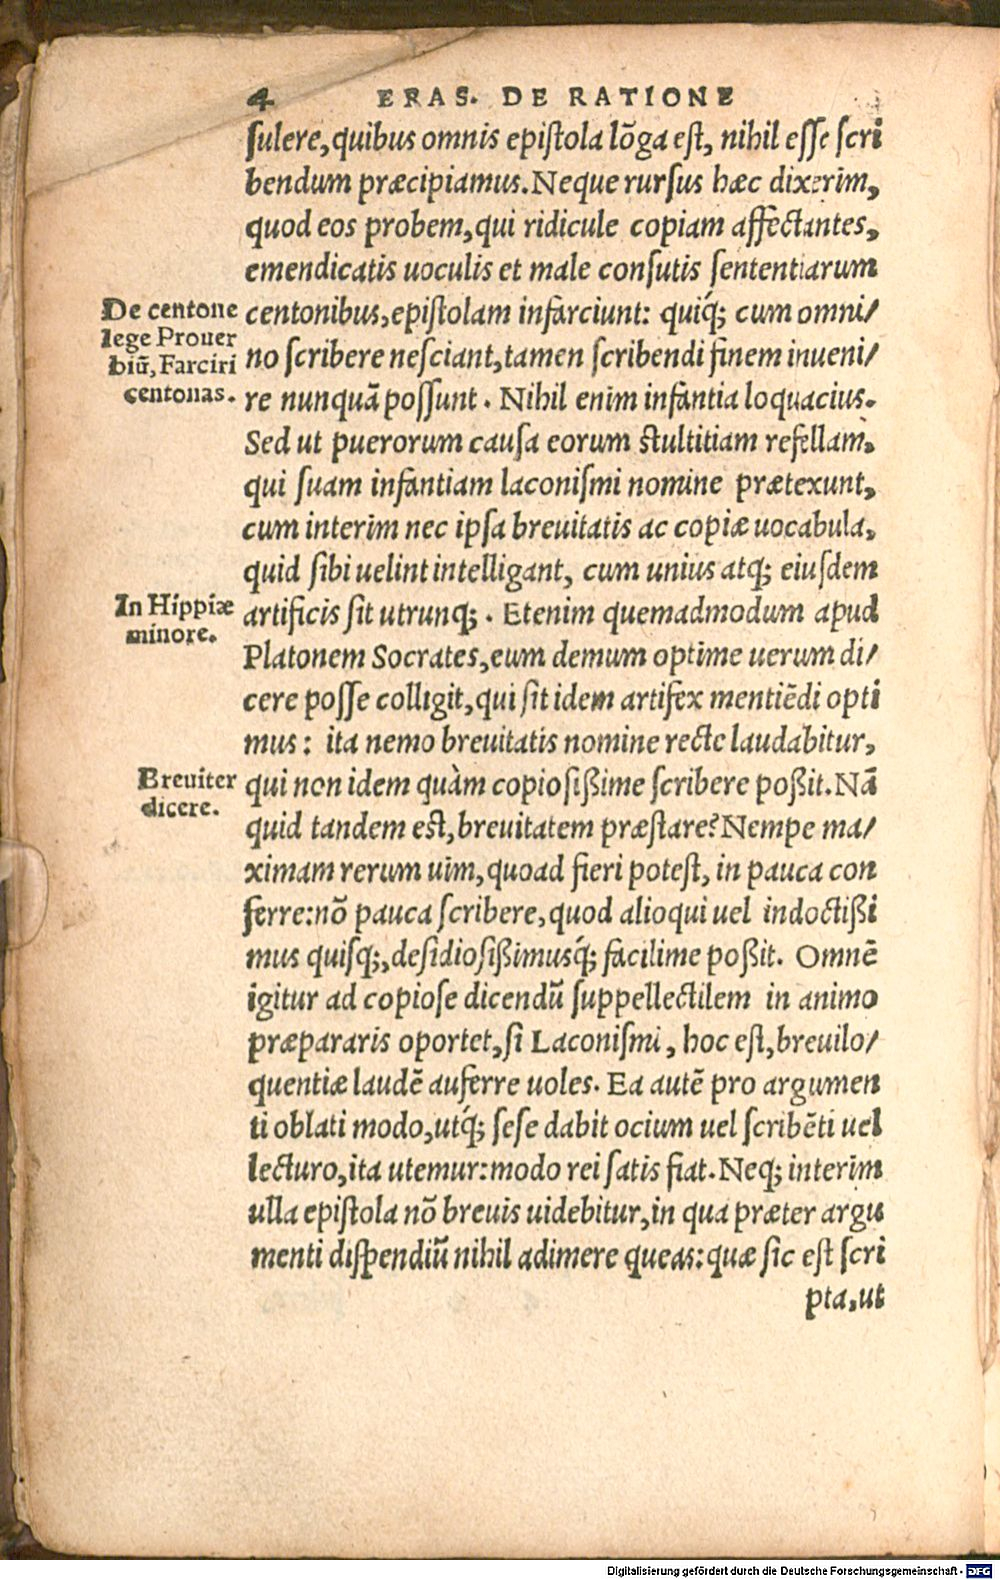 4 ERAS. DE RATIONE
sulere, quibus omnis epistola lõga est, nihil esse scri
bendum præcipiamus. Neque rursus hæc dixerim,
quod eos probem, qui ridicule copiam affectantes,
emendicatis uoculis et male consutis sententiarum
centonibus, epistolam infarciunt: quiq́; cum omni/
no scribere nesciant, tamen scribendi finem inueni/
re nunquã possunt. Nihil enim infantia loquacius.
Sed ut puerorum causa eorum stultitiam refellam,
qui suam infantiam laconismi nomine prætexunt,
cum interim nec ipsa breuitatis ac copiæ uocabula,
quid sibi uelint intelligant, cum unius atq; eiusdem
artificis sit utrunq;. Etenim quemadmodum apud
Platonem Socrates, eum demum optime uerum di/
cere posse colligit, qui sit idem artifex mentiẽdi opti
mus: ita nemo breuitatis nomine recte laudabitur,
qui non idem quàm copiosißime scribere poßit. Nã
quid tandem est, breuitatem præstare? Nempe ma/
ximam rerum uim, quoad fieri potest, in pauca con
ferre: nõ pauca scribere, quod alioqui uel indoctißi
mus quisq;, desidiosißimusq́; facilime poßit. Omnẽ
igitur ad copiose dicendũ suppellectilem in animo
præpararis oportet, si Laconismi, hoc est, breuilo/
quentiæ laudẽ auferre uoles. Ea autẽ pro argumen
ti oblati modo, utq́; sese dabit ocium uel scribẽti uel
lecturo, ita utemur: modo rei satis fiat. Neq; interim
ulla epistola nõ breuis uidebitur, in qua præter argu
menti dispendiũ nihil adimere queas: quæ sic est scri
pta, ut
De centone
lege Prouer
biũ, Farciri
centonas.
In Hippiæ
minore.
Breuiter
dicere.
Digitalisierung gefördert durch die Deutsche Forschungsgemeinschaft - DFG